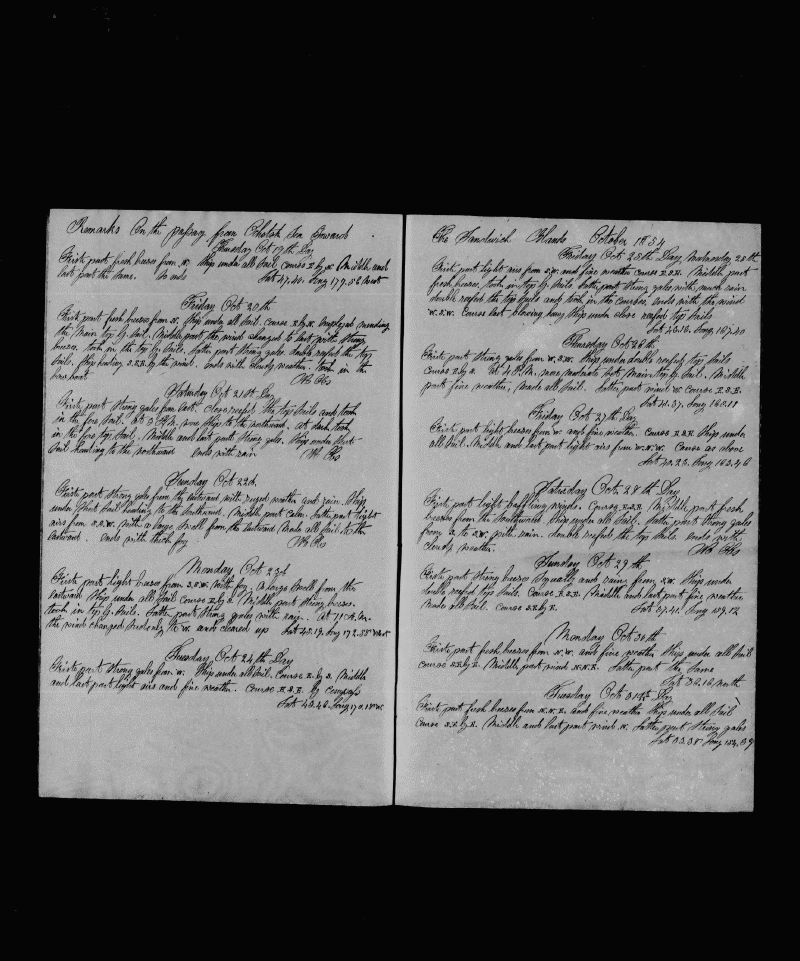 Remarks On the passag from Ochotsk Sea towards
Thursday Oct 19th Day
First part fresh breeses from N. Ship under all sail course E by N Middle and
last part the same. So ends Lat 47.40. Long 179.52 West
Friday Oct 20th
First part fresh breeses from N. Ship under all sail. Course E by N. Employed mending
the Main top g. sail. Middle part the wind changed to last part strong
breeses. took in the top g. sails. Latter part strong gales double reefed the top
sails. Ship heading S.S.E. by the wind. ends with cloudy weather. took in the
bow boat No Obs
Saturday Oct 21st Day
First part strong gales from East. close reefed the top sails and took
in the fore sail. At P.M. wore ship to the northward. At dark took
in the fore top sail. Middle and last parts strong gale. Ship under short
sail heading to the northward ends with rain No Obs
Sunday Oct 22d
First part strong gales from the eastward with weather and rain. Ship
under short sail heading to the Southward. Middle part calm. Latter part light
airs from S.S.W. with a large swell from the eastward Made all sail to the
eastward. ends with thick fog No Obs
Monday Oct 23d
First part light breeses from S.S.W. with fog. A large swell from the
eastward Ship under all sail Course E by S. Middle part strong breeses.
took in top g. sails. Latter part strong gales with rain. At 11 A.M.
the wind changed suddenly to W. and cleared up Lat 45.19. Long 172.55 West
Tuesday Oct 24th Day
First part strong gales from W. Ship under all sail. Course E. by S. Middle
and last part light airs and fine weather. Course E.S.E. by compass
Lat 43.46. Long 170.18 W.
The Sandwich Islands October 1854
Wednesday 25th
First part light airs from S.W. and fine weather Course E.S.E. Middle part
fresh breeses, took in top g. sails Latter part strong gales with much rain
double reefed the top sails and took in the ends with the wind
W.S.W. Course East blowing heavy ship under close reefed top sails
Lat 43.16. Long. 167.40
Thursday Oct 26th
First part strong gales from W.S.W. Ship under double reefed top sails
Course E by S. At 4 P.M. more moderate set Main top g. sail. Middle
part fine weather, made all sail. Latter part wind W. Course E.S.E.
Lat 41.37. Long 165.11
Friday Oct 27th Day
First part light breeses from W. and fine weather. Course E.S.E. Ship under
all sail. Middle and last part light airs from W.N.W. Course as above
Lat 40.23. Long 163.46
Saturday Oct. 28th Day
First part light baffling winds. Course E.S.E. Middle part fresh
breeses from the Southward. Ship under all sail. Latter part strong gales
from S. to S.W. with rain. double reefed the top sails. ends with
cloudy weather. No Obs
Sunday Oct 29th
First part strong breeses Squally and rain from S.W. Ship under
double reefed top sails. Course E.S.E. Middle and last part fine weather
Made all sail. Course S.E. by E. Lat 37.41. Long 159.12
Monday Oct 30th
First part fresh breeses from N.W. and fine weather Ship under all sail
Course S.E. by E. Middle part wind N.N.E. Latter part the Same
Lat 36.16 North
Tuesday Oct 31st Day
First part fresh breeses from N.N.E. and fine weather Ship under all sail
Course S.E. by E. Middle and last part wind N. Latter part strong gales
Lat 33.38 Long 154.39